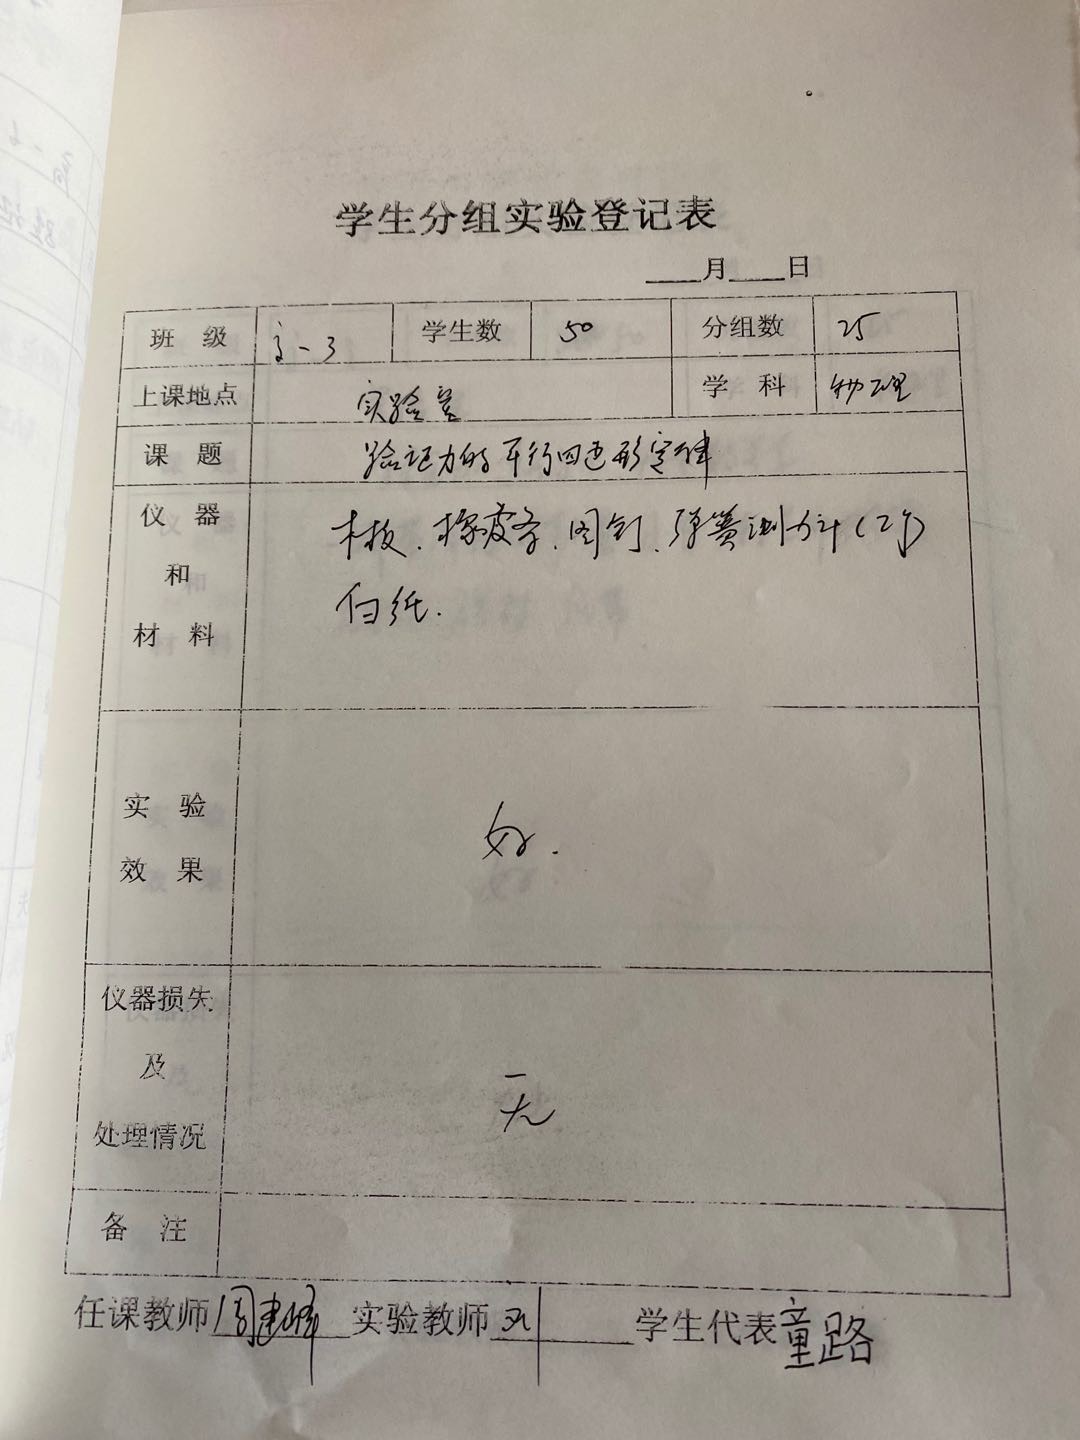 学生分组实验登记表
____月____日
班 级 -3 学生数 50 分组数 25
上课地点 实验室 学 科 物理
课 题 验证力的平行四边形定律
仪 器 木板、橡皮条、图钉、弹簧测力计(2个)
和 白纸.
材 料
实 验
效 果 好.
仪器损失
及
处理情况 无
备 注
任课教师 周建峰 实验教师 学生代表 童路